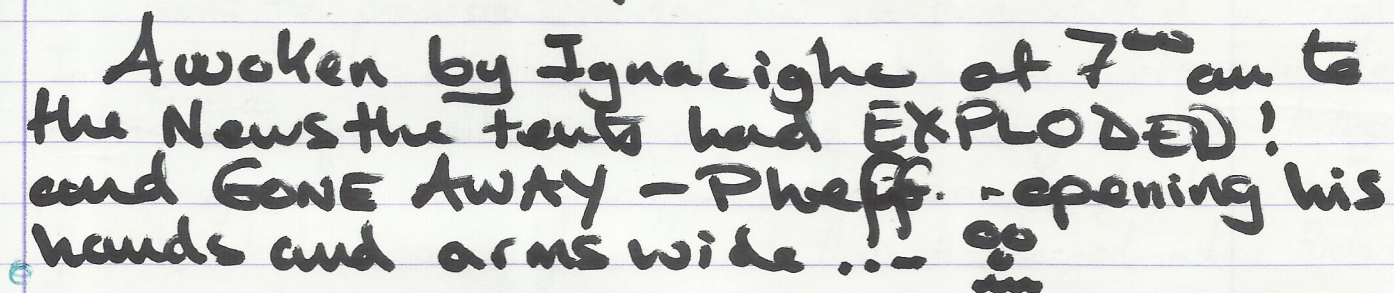 Awoken by Ignacighc at 7°° am to
the News the tents had EXPLODED!
and GONE AWAY - Pheff. - opening his
hands and arms wide ..-